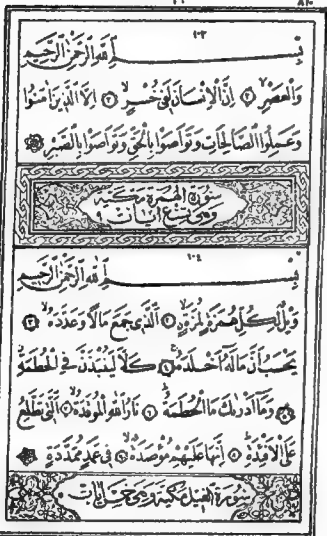 ١٠٣
بِسْمِ اللَّهِ الرَّحْمَنِ الرَّحِيمِ
وَالْعَصْرِ ۙ ١ اِنَّ الْاِنْسَانَ لَفٖى خُسْرٍ ۙ ٢ اِلَّا الَّذٖينَ اٰمَنُوا
وَعَمِلُوا الصَّالِحَاتِ وَتَوَاصَوْا بِالْحَقِّ وَتَوَاصَوْا بِالصَّبْرِ
سُورَةُ الْهُمَزَةِ مَكِّيَّةٌ
وَهِىَ تِسْعُ اٰيَاتٍ
١٠٤
بِسْمِ اللَّهِ الرَّحْمَنِ الرَّحِيمِ
وَيْلٌ لِكُلِّ هُمَزَةٍ لُمَزَةٍ ۙ ١ اَلَّذٖى جَمَعَ مَالًا وَعَدَّدَهُ ۙ ٢
يَحْسَبُ اَنَّ مَالَهُ اَخْلَدَهُ ۚ ٣ كَلَّا لَيُنْبَذَنَّ فِى الْحُطَمَةِ
٤ وَمَا اَدْرٰيكَ مَا الْحُطَمَةُ ٥ نَارُ اللّٰهِ الْمُوقَدَةُ ۙ ٦ اَلَّتٖى تَطَّلِعُ
عَلَى الْاَفْـِٔدَةِ ٧ اِنَّهَا عَلَيْهِمْ مُؤْصَدَةٌ ۙ ٨ فٖى عَمَدٍ مُمَدَّدَةٍ
سُورَةُ الْفٖيلِ مَكِّيَّةٌ وَهِىَ خَمْسُ اٰيَاتٍ